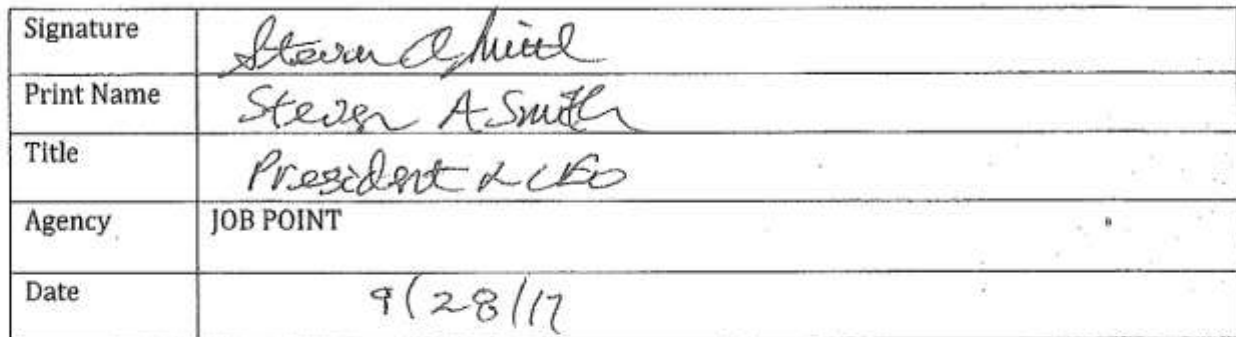 Signature Steven A Smith
Print Name Steven A Smith
Title President & CEO
Agency JOB POINT
Date 9/28/17